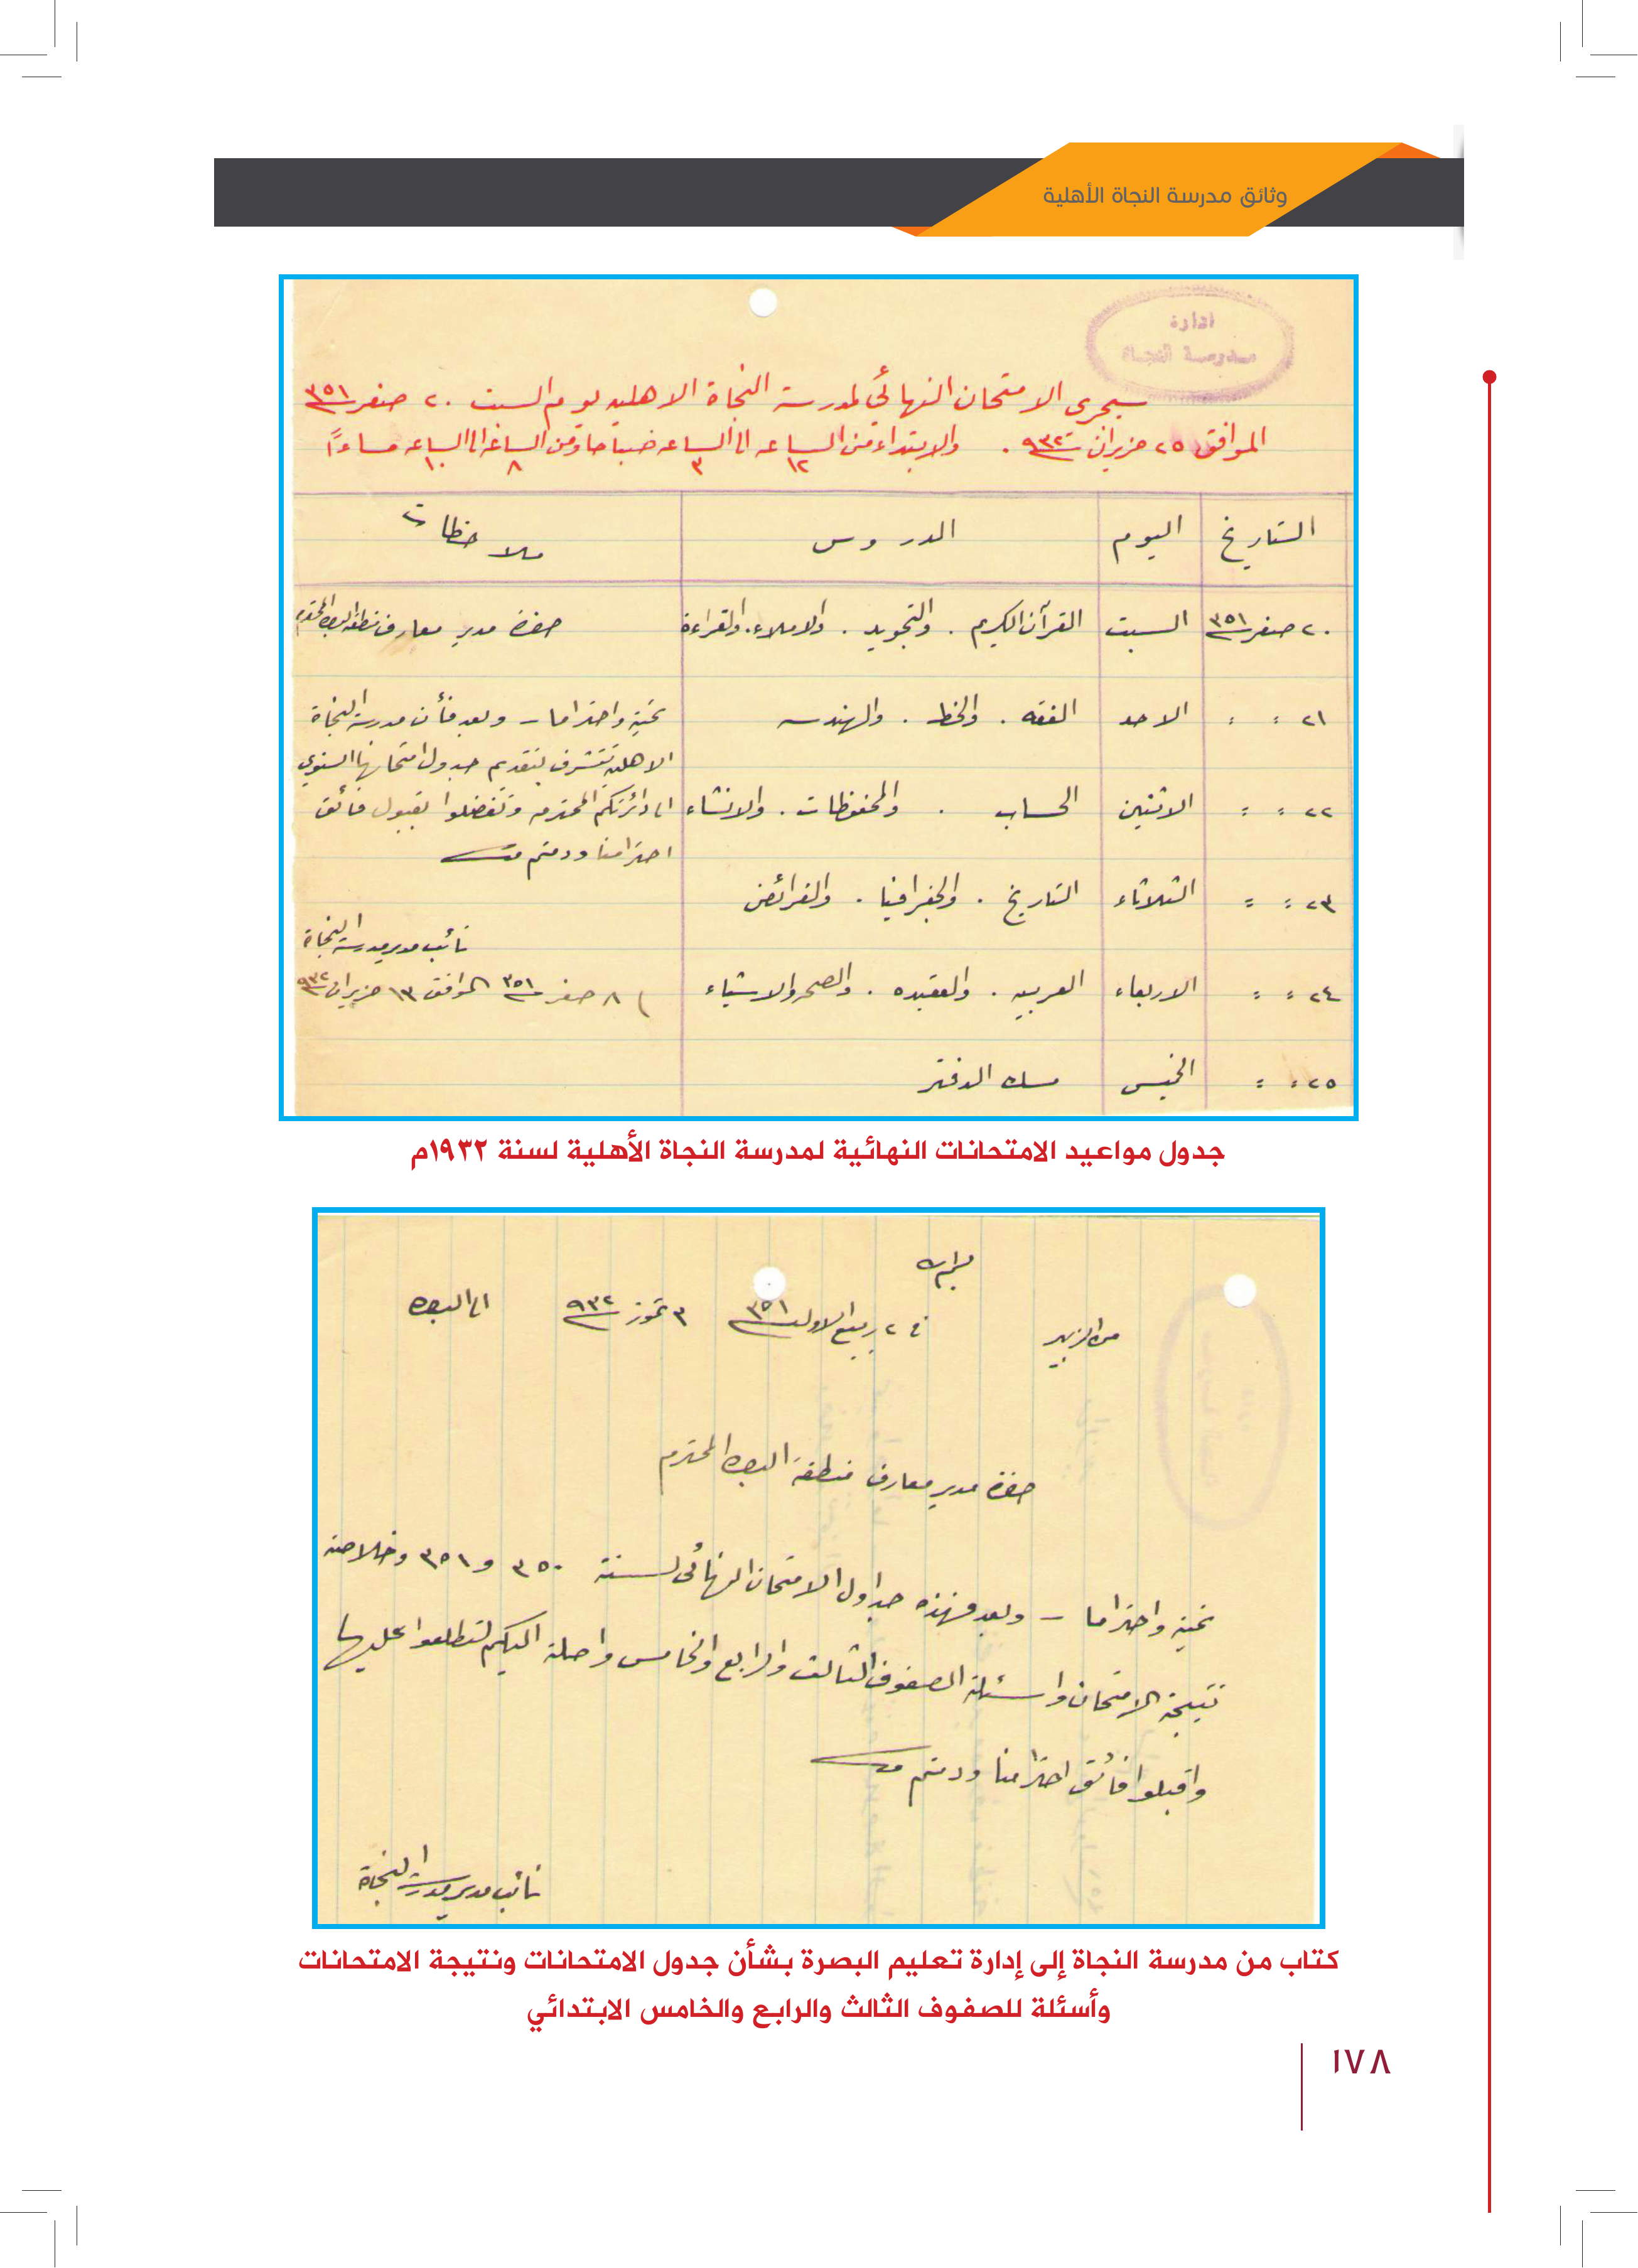 وثائق مدرسة النجاة الأهلية
ادارة
مدرسة النجاة
سيجرى الامتحان النهائي لمدرسة النجاة الاهليه يوم السبت ٢٠ صفر ٣٥١
الموافق ٢٥ حزيران سنة ٩٣٢ . والابتداء من الساعه ١٢ الى الساعه ٣ صباحا ومن الساعه ٨ الى الساعه ١٠ مساءاً
التاريخ اليوم الدروس ملاحظات
٢٠ صفر ٣٥١ السبت القرآن الكريم . والتجويد . والاملاء . والقراءة حضرة مدير معارف منطقة البصره المحترم
٢١ : : الاحد الفقه . والخط . والهندسه تحية واحتراما – وبعد فأن مدرسة النجاة
الاهلية تتشرف بتقديم جدول امتحانها السنوي
٢٢ : : الاثنين الحساب . والمحفوظات . والانشاء الى دائرتكم المحترمه وتفضلوا بقبول فائق
احترامنا ودمتم
٢٣ : : الثلاثاء التاريخ . والجغرافيا . والفرائض
نائب مدير مدرسة النجاة
٢٤ : : الاربعاء العربيه . والعقيده . والصحه والاشياء ٨ صفر ٣٥١ الموافق ١٣ حزيران ٩٣٢
٢٥ : : الخميس مسك الدفتر
جدول مواعيد الامتحانات النهائية لمدرسة النجاة الأهلية لسنة ١٩٣٢م
من الزبير في ٢ ربيع الاول ٣٥١ ٣ تموز ٩٣٢ الى البصره
حضرة مدير معارف منطقة البصره المحترم
تحية واحتراما – وبعد فهذه جداول الامتحان النهائى لسنة ٣٥٠ و ٣٥١ وخلاصة
نتيجة الامتحان واسئلة الصفوف الثالث والرابع والخامس واصلة اليكم لتطلعوا عليها
واقبلوا فائق احترامنا ودمتم
نائب مدير مدرسة النجاة
كتاب من مدرسة النجاة إلى إدارة تعليم البصرة بشأن جدول الامتحانات ونتيجة الامتحانات
وأسئلة للصفوف الثالث والرابع والخامس الابتدائي
١٧٨